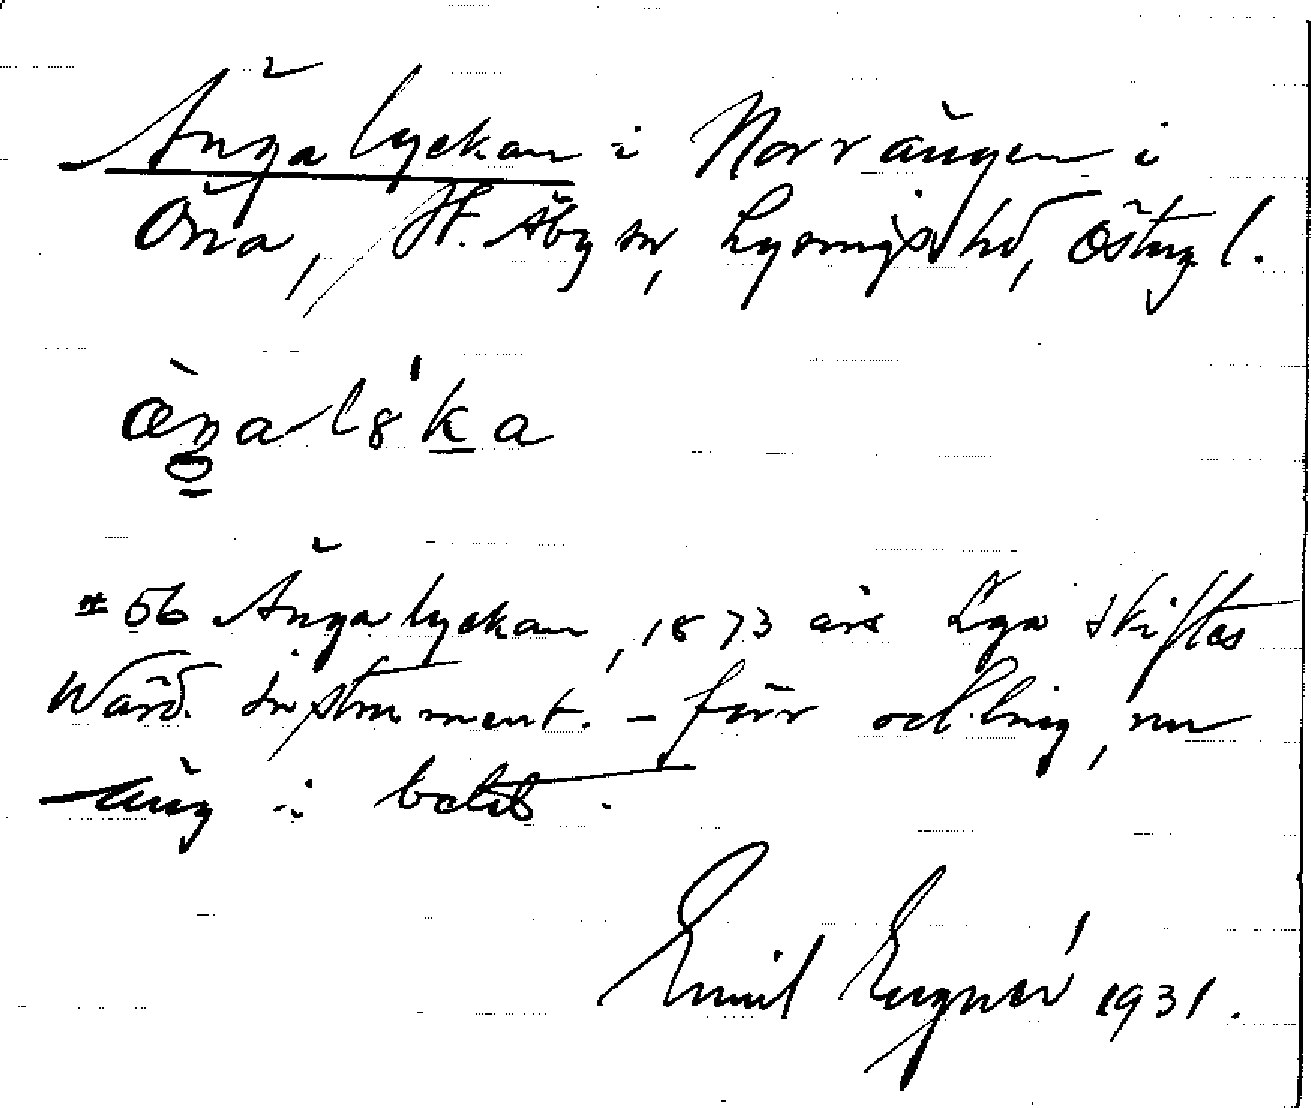 Ängalyckan i Norrängen i
Öna, St. Åby sn, Lysings hd, Östrg l.
# 56 Ängalyckan, 1873 års Laga skiftes
Wärd. instrument. – förr odling, nu
äng i betet.
Emil Engnér 1931.